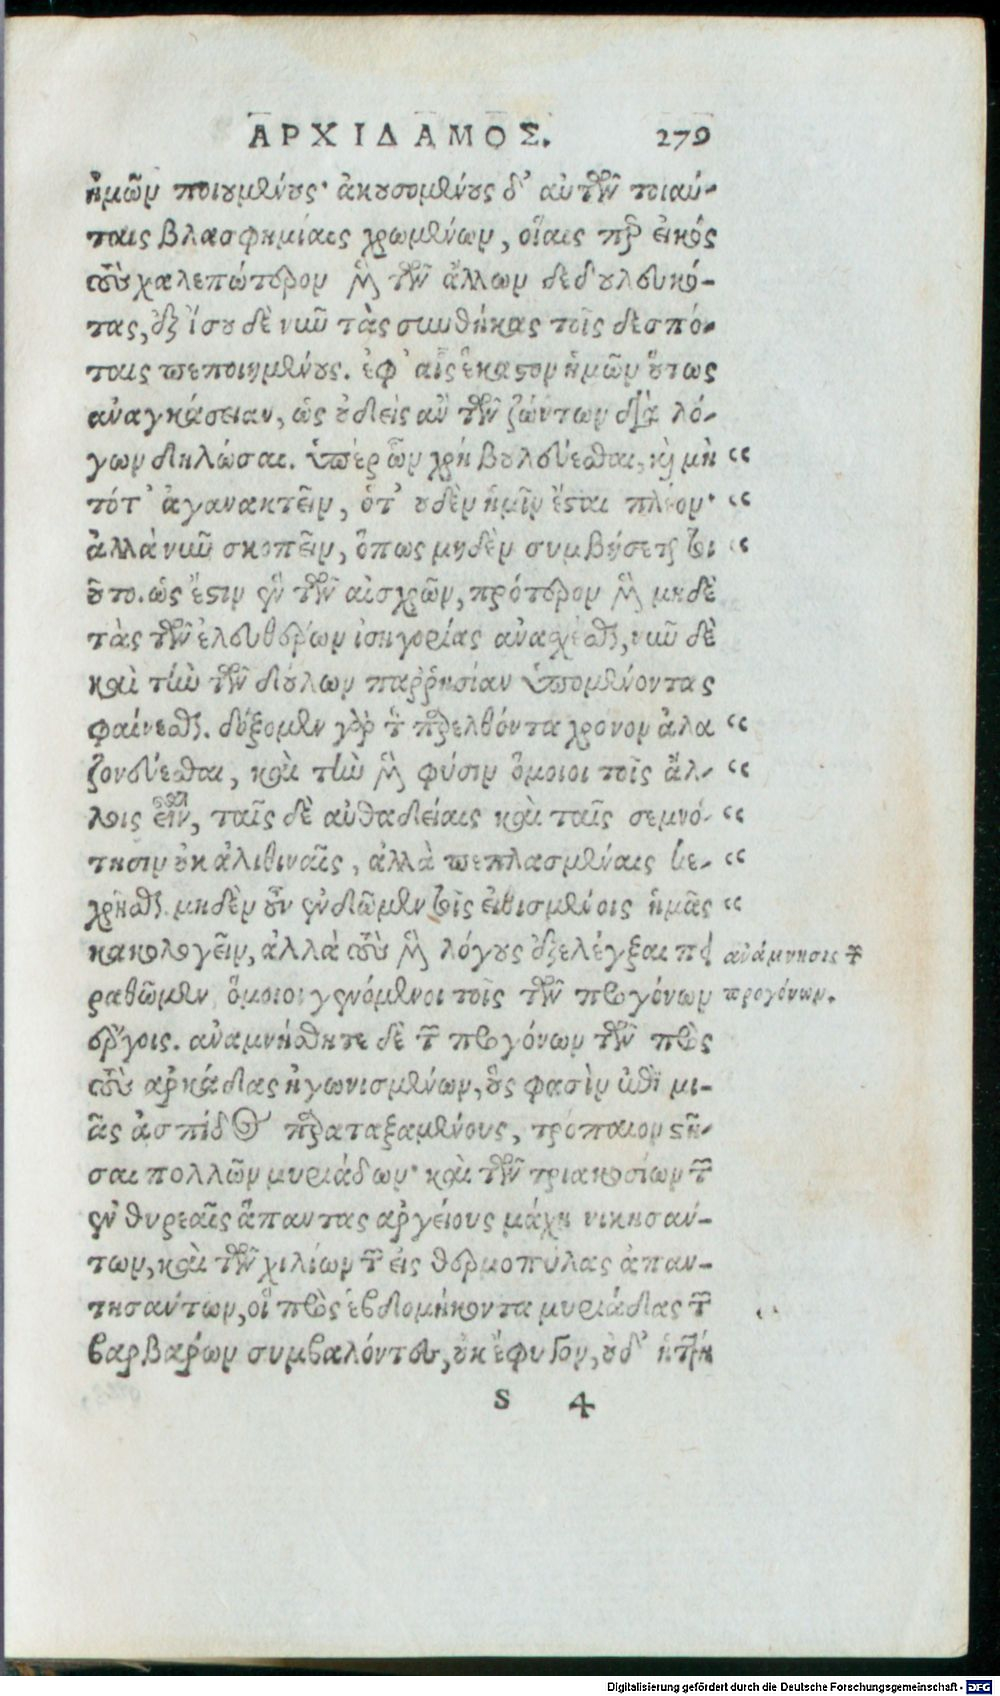 ΑΡΧΙΔΑΜΟΣ. 279
ἡμῶν ποιουμένους· ἀκουσομένους δ' αὖ τῶν τοιαύ-
ταις βλασφημίαις χρωμένων, οἵαις περ εἰκός
τοὺς χαλεπώτερον μὲν τῶν ἄλλων δεδουλευκό-
τας, ἐξ ἴσου δὲ νῦν τὰς συνθήκας τοῖς δεσπό-
ταις πεποιημένους. ἐφ' αἷς ἕκαστον ἡμῶν οὕτως
ἀναγκάσειαν, ὡς οὐδεὶς ἂν τῶν ζώντων διὰ λό-
γων δηλώσαι. ὑπὲρ ὧν χρὴ βουλεύεσθαι, καὶ μὴ “
τότ' ἀγανακτεῖν, ὅτ' οὐδὲν ἡμῖν ἔσται πλέον· “
ἀλλὰ νῦν σκοπεῖν, ὅπως μηδὲν συμβήσεται τοι “
οῦτο. ὡς ἔστιν ἓν τῶν αἰσχρῶν, πρότερον μὲν μηδὲ
τὰς τῶν ἐλευθέρων ἰσηγορίας ἀνασχέσθαι, νῦν δὲ
καὶ τὴν τῶν δούλων παῤῥησίαν ὑπομένοντας
φαίνεσθαι. δόξομεν γὰρ τὸν παρελθόντα χρόνον ἀλα “
ζονεύεσθαι, καὶ τὴν μὲν φύσιν ὅμοιοι τοῖς ἄλ- “
λοις εἶναι, ταῖς δὲ αὐθαδείαις καὶ ταῖς σεμνό- “
τησιν οὐκ ἀλιθιναῖς, ἀλλὰ πεπλασμέναις κε- “
χρῆσθαι. μηδὲν οὖν ἐνδῶμεν τοῖς εἰθισμένοις ἡμᾶς “
κακολογεῖν, ἀλλὰ τοὺς μὲν λόγους ἐξελέγξαι πει
ραθῶμεν ὅμοιοι γενόμενοι τοῖς τῶν προγόνων
ἔργοις. ἀναμνήσθητε δὲ τῶν προγόνων τῶν πρὸς
τοὺς ἀρκάδας ἠγωνισμένων, οὕς φασὶν ἐπὶ μι-
ᾶς ἀσπίδος παραταξαμένους, τρόπαιον στῆ-
σαι πολλῶν μυριάδων· καὶ τῶν τριακοσίων τῶν
ἐν θυρεαῖς ἅπαντας ἀργείους μάχῃ νικησάν-
των, καὶ τῶν χιλίων τῶν εἰς θερμοπύλας ἀπαν-
τησάντων, οἳ πρὸς ἑβδομήκοντα μυριάδας τῶν
βαρβάρων συμβαλόντες, οὐκ ἔφυγον, οὐδ' ἡττή
ἀνάμνησις τῶν
προγόνων.
S 4
Digitalisierung gefördert durch die Deutsche Forschungsgemeinschaft - DFG